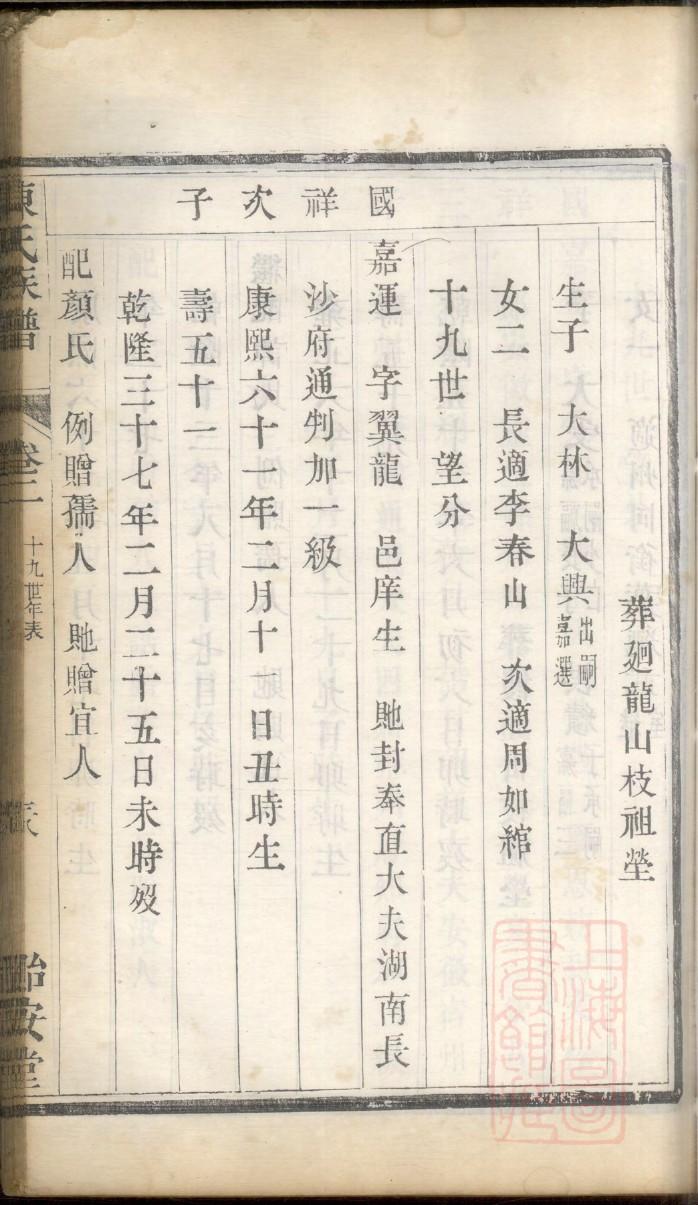 國祥次子
葬廻龍山枝祖塋
生子 大林 大興出嗣嘉選
女二 長適李春山 次適周如綰
十九世望分
嘉運 字翼龍 邑庠生 貤封奉直大夫湖南長
沙府通判加一級
康熙六十一年二月十一日丑時生
壽五十一
乾隆三十七年二月二十五日未時歿
配顏氏 例贈孺人 貤贈宜人
陳氏族譜 卷二 十九世年表 怡安堂
上海圖書館藏